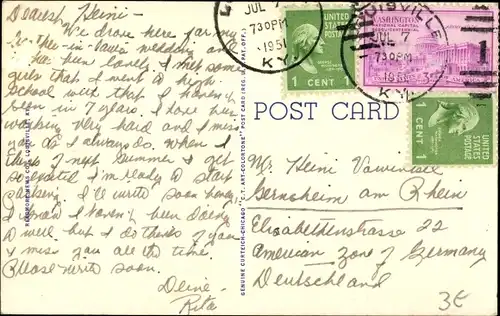 Dearest Heini -
We drove here for my
wedding and
been lovely. I met some
girls that I went to high
school with that I haven't
seen in 7 years. I hope
working very hard and I miss
you as I always do. When I
think of next summer I get
so excited I'm ready to start
I'll write soon honey,
I know I haven't been doing
so well but I do think of you
& miss you all the time.
Please write soon.
Deine
Rita
POST CARD
GENUINE CURTEICH-CHICAGO "C.T. ART-COLORTONE" POST CARD (REG. U.S. PAT. OFF.)
JUL 7
7 30 PM
1950
KY.
UNITED STATES POSTAGE
1 CENT 1
LOUISVILLE
JUL 7
7 30 PM
1950
KY.
1
WASHINGTON
NATIONAL CAPITAL
SESQUICENTENNIAL
3¢
UNITED STATES POSTAGE
1 CENT 1
Mr. Heini
Gernsheim am Rhein
Elisabethenstrasse 22
American Zone of Germany
Deutschland
3E